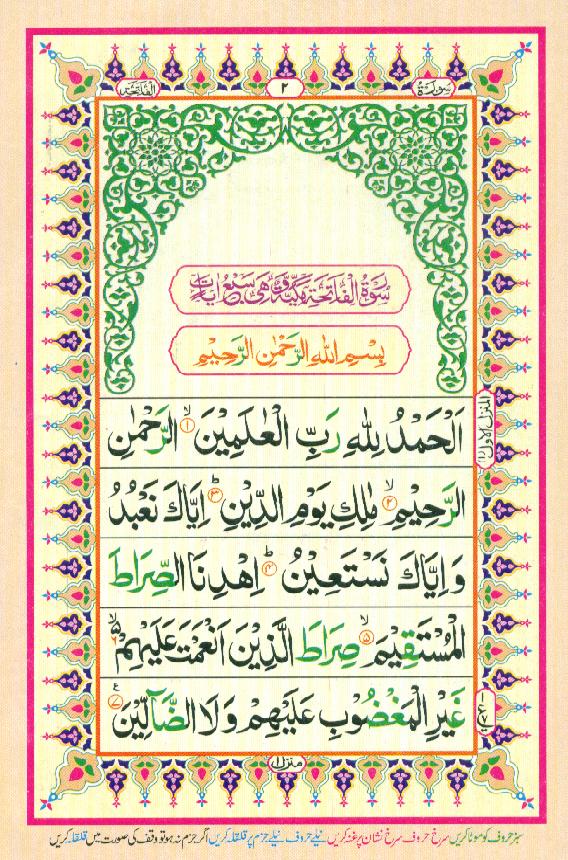 سورة ٢ الفاتحة
سُوْرَةُ الْفَاتِحَةِ مَكِّيَّةٌ وَّهِىَ سَبْعُ اٰيَاتٍ
بِسْمِ اللّٰهِ الرَّحْمٰنِ الرَّحِيْمِ
اَلْحَمْدُ لِلّٰهِ رَبِّ الْعٰلَمِيْنَ ۙ﴿۱﴾ الرَّحْمٰنِ
الرَّحِيْمِ ۙ﴿۲﴾ مٰلِكِ يَوْمِ الدِّيْنِ ؕ﴿۳﴾ اِيَّاكَ نَعْبُدُ
وَ اِيَّاكَ نَسْتَعِيْنُ ؕ﴿۴﴾ اِهْدِنَا الصِّرَاطَ
الْمُسْتَقِيْمَ ۙ﴿۵﴾ صِرَاطَ الَّذِيْنَ اَنْعَمْتَ عَلَيْهِمْ ۙ۬﴿۶﴾
غَيْرِ الْمَغْضُوْبِ عَلَيْهِمْ وَ لَا الضَّآلِّيْنَ ﴿۷﴾
المنزل الاول
منزل ١
سبز حروف کو موٹا کریں سرخ حروف سرخ نشان پر غنہ کریں نیلے حروف نیلے جزم پر قلقلہ کریں اگر جزم نہ ہو تو وقف کی صورت میں قلقلہ کریں